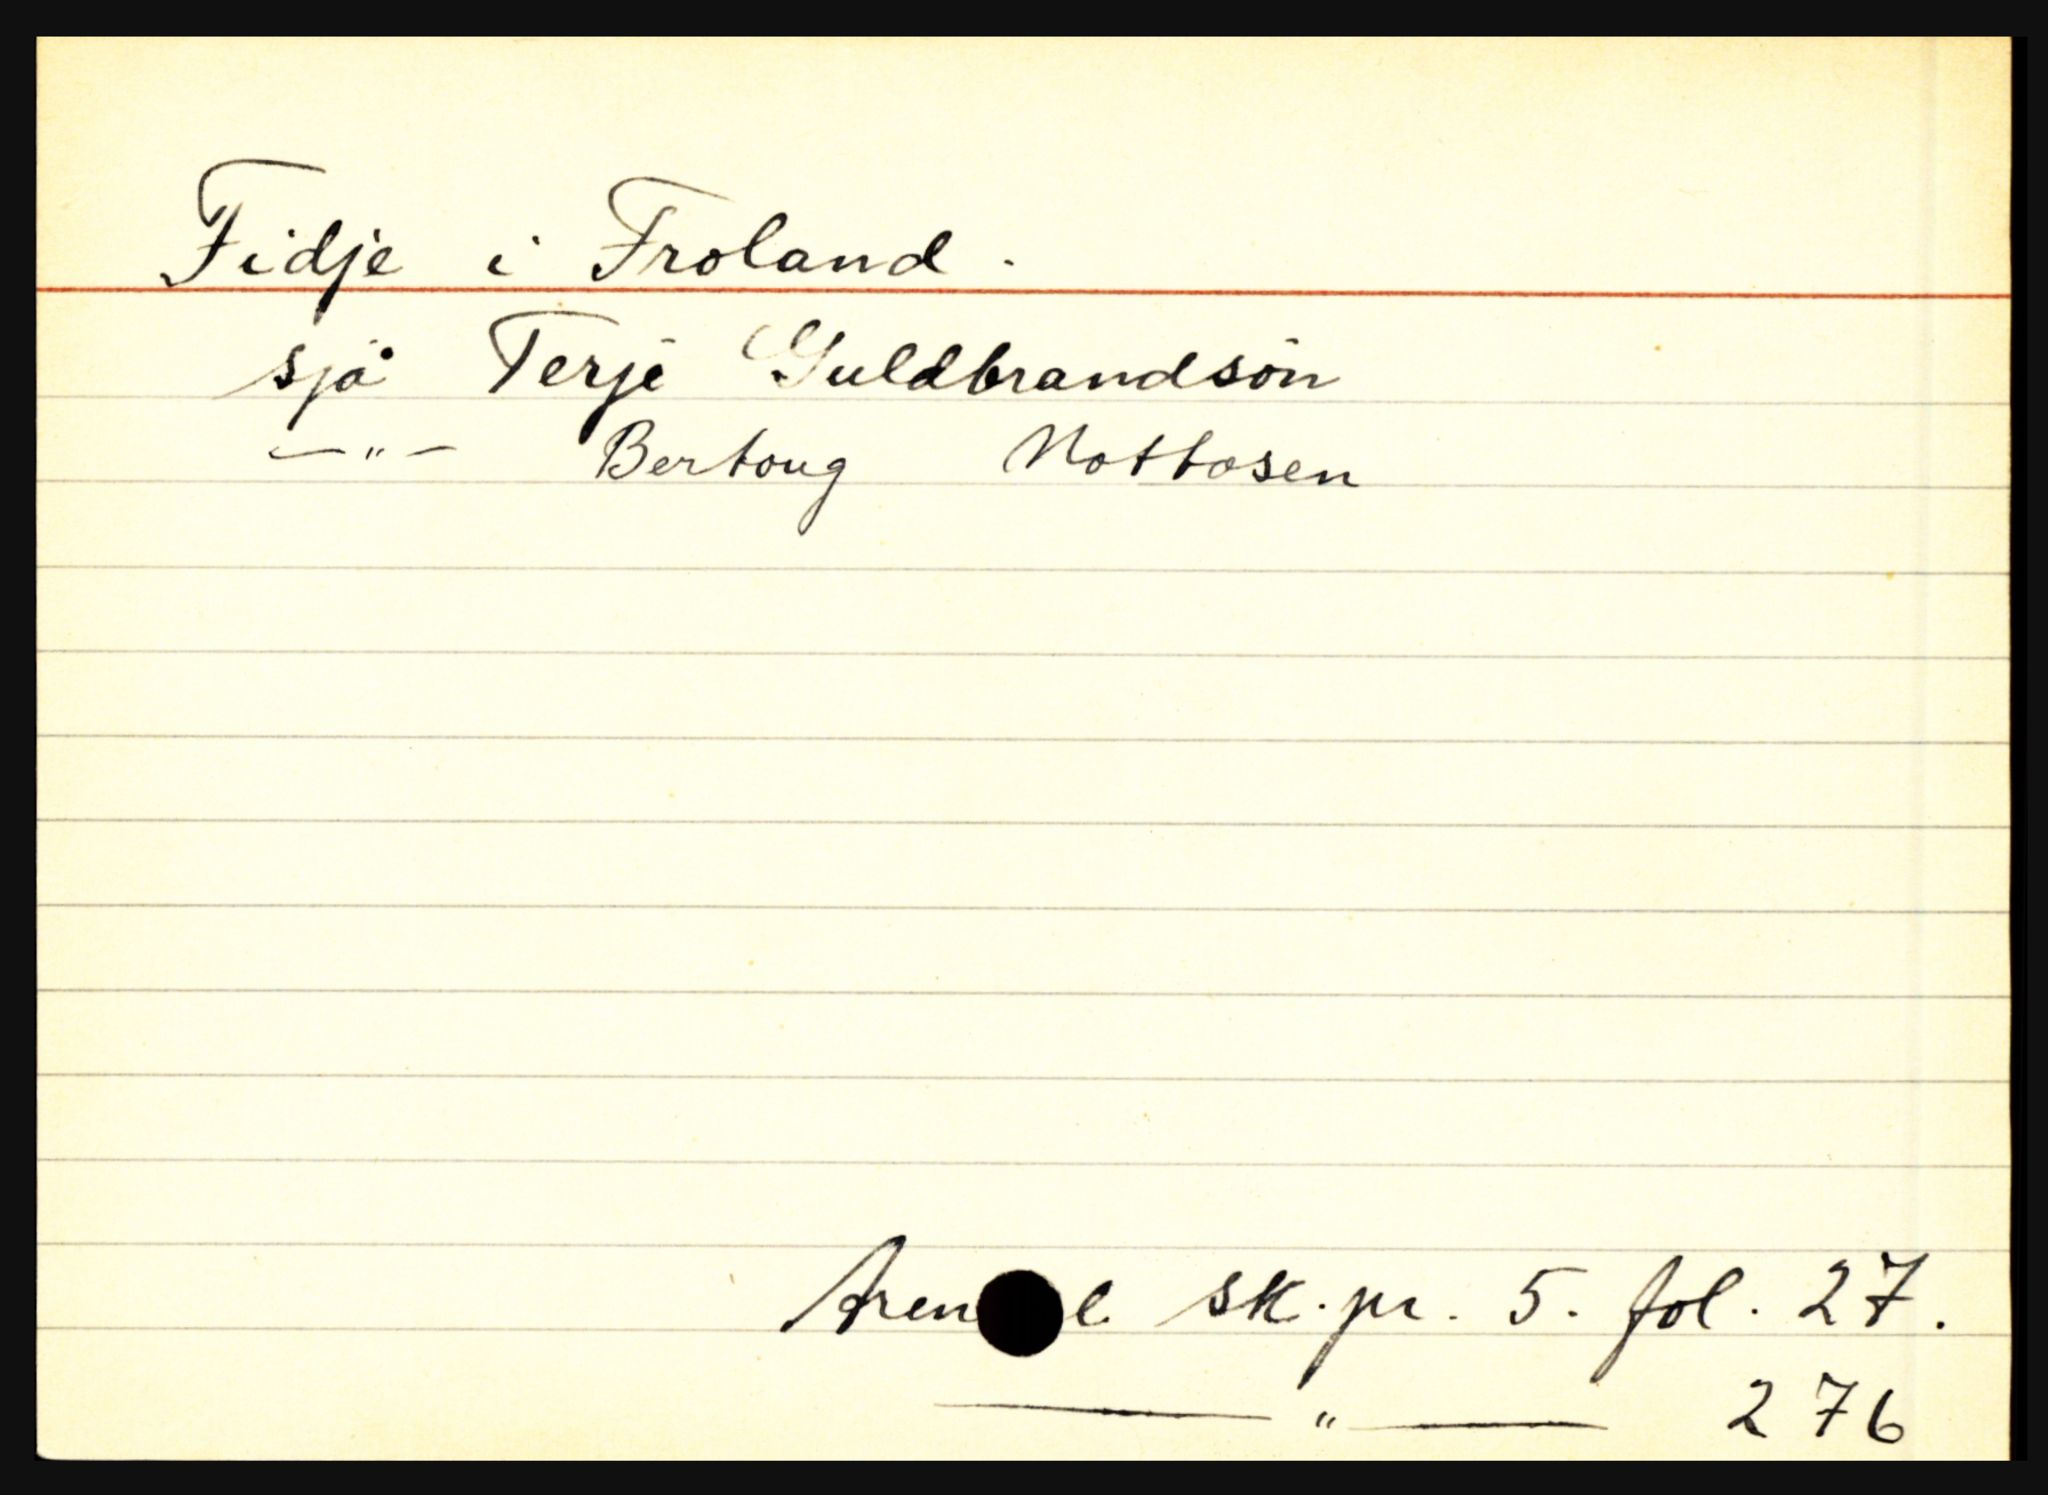 Fidje i Froland.
sjå Terje Guldbrandsön
— " — Bertoug Nottosen
Aren l sk. pr. 5. fol. 27.
— " — 276